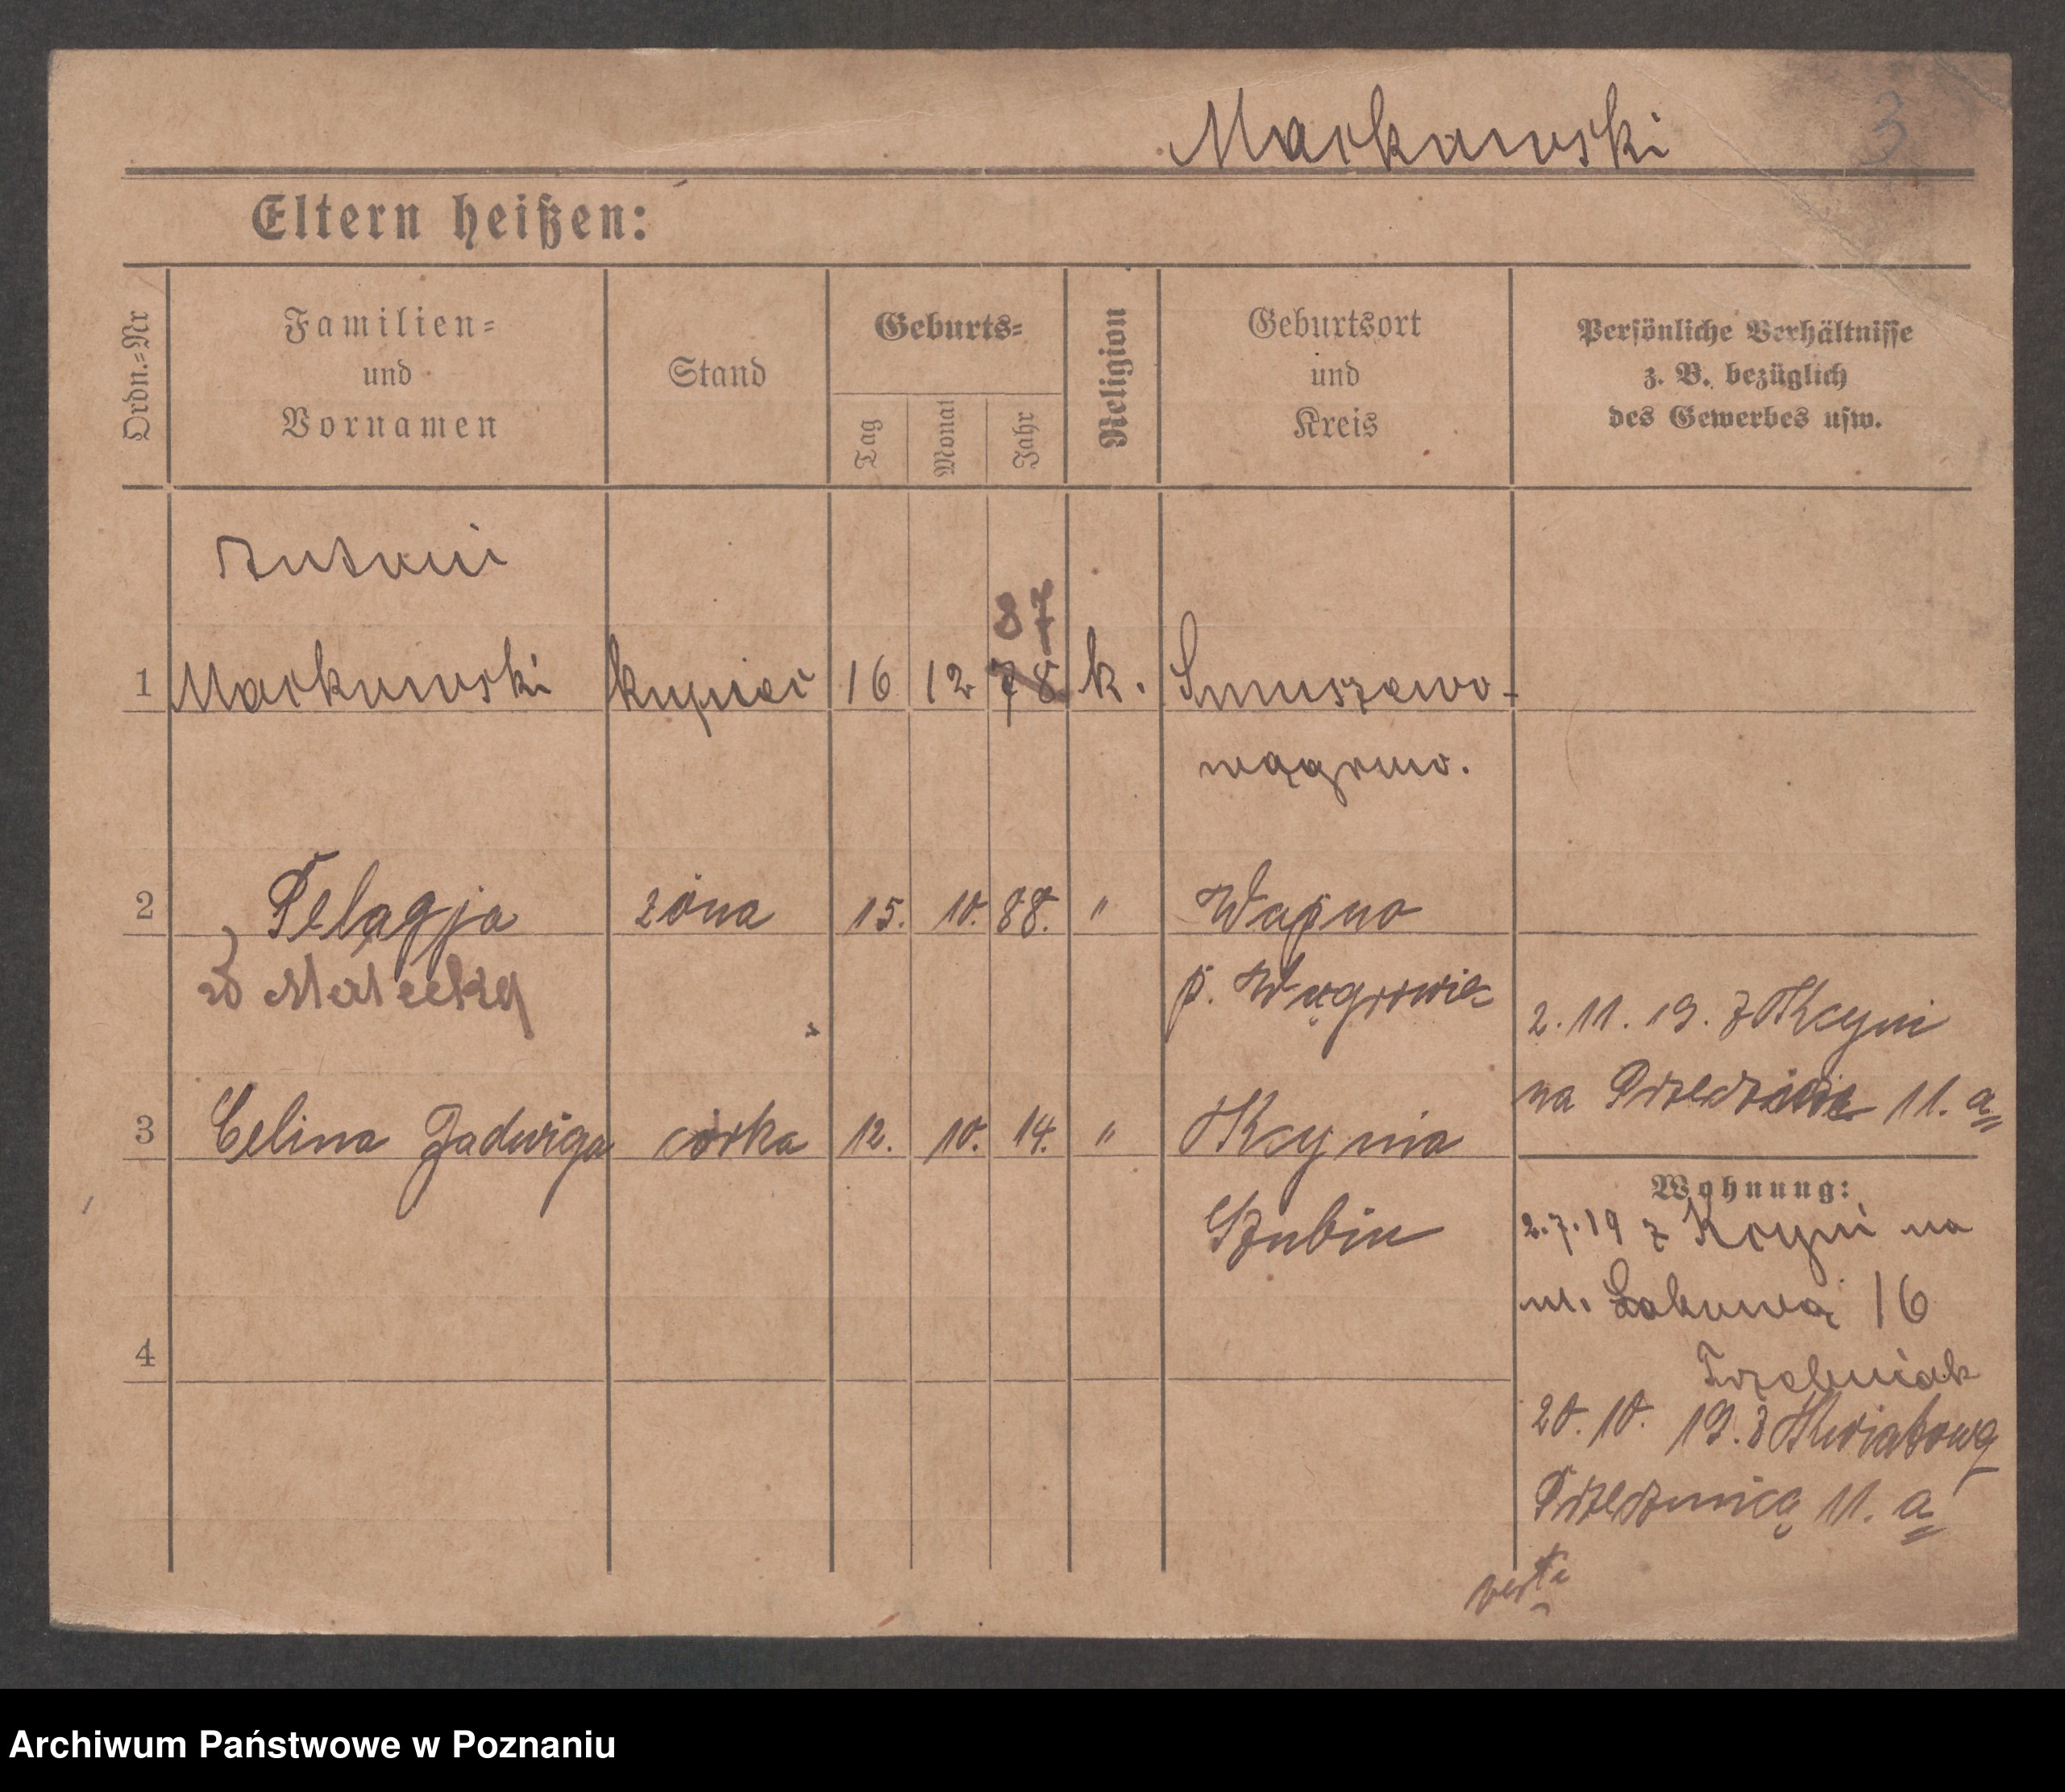 Markowski
3
Eltern heißen:
Ordn.=Nr
Familien=
und
Vornamen
Stand
Geburts=
Tag
Monat
Jahr
Religion
Geburtsort
und
Kreis
Persönliche Verhältnisse
z. B. bezüglich
des Gewerbes usw.
Antoni
87
1 Markowski kupiec 16 12 78 k. Smuszewo-
wągrow.
2 Pelagja żona 15. 10. 88. " Wapno
p. Wągrowiec
2. 11. 19. z Kcyni
na 11. a
3 Celina Jadwiga córka 12. 10. 14. " Kcynia
Szubin
Wohnung:
2.7.19 z Kcyni na
ul. Łąkową 16
4
20. 10. 19. z Kwiatową
11. a
Archiwum Państwowe w Poznaniu